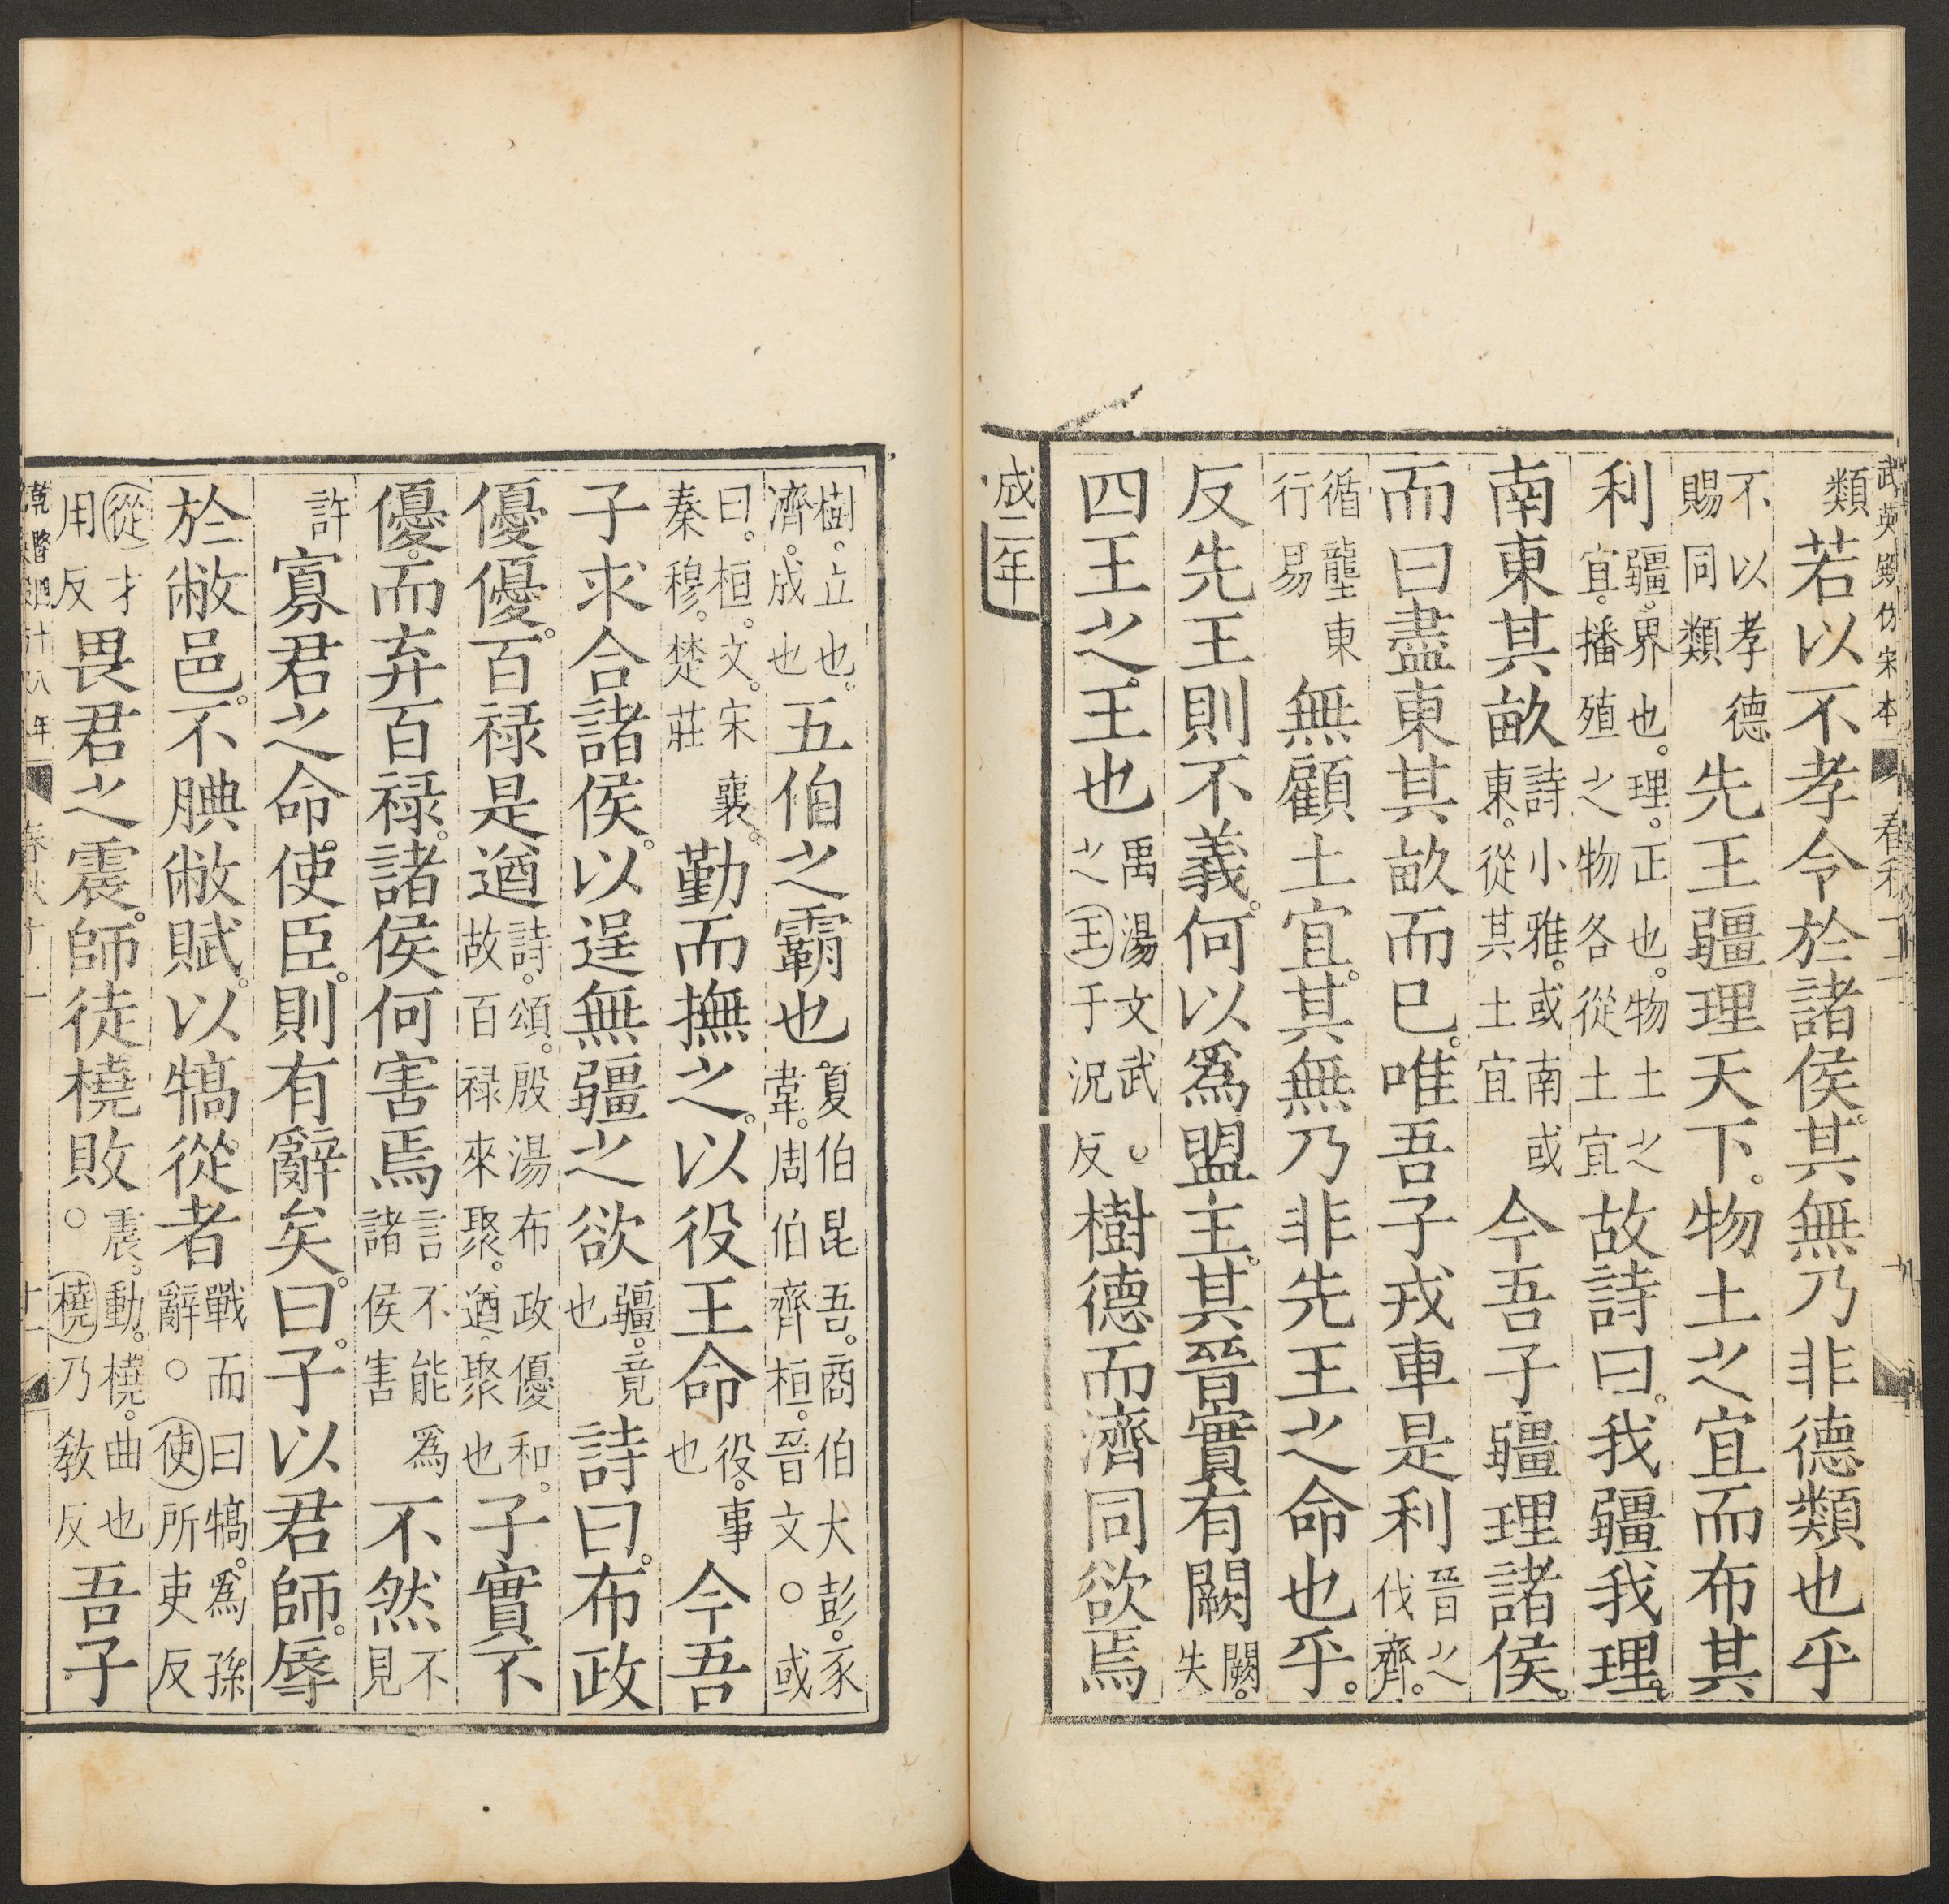 武英殿仿宋本 春秋
類若以不孝令於諸侯其無乃非德類也乎
不以孝德賜同類先王疆理天下物土之宜而布其
利疆界也理正也物土之宜播殖之物各從土宜故詩曰我疆我理
南東其畝詩小雅或南或東從其土宜今吾子疆理諸侯
而曰盡東其畝而已唯吾子戎車是利晉之伐齊
循壟東行易無顧土宜其無乃非先王之命也乎
反先王則不義何以爲盟主其晉實有闕闕失
四王之王也禹湯文武○之王于況反樹德而濟同欲焉
成二年
樹立也濟成也五伯之霸也夏伯昆吾商伯大彭豕韋周伯齊桓晉文○或
曰桓文宋襄秦穆楚莊勤而撫之以役王命役事也今吾
子求合諸侯以逞無疆之欲疆竟也詩曰布政
優優百禄是遒詩頌殷湯布政優和故百禄來聚遒聚也子實不
優而弃百禄諸侯何害焉言不能爲諸侯害不然不見
許寡君之命使臣則有辭矣曰子以君師辱
於敝邑不腆敝賦以犒從者戰而曰犒爲孫辭○使所吏反
從才用反畏君之震師徒橈敗震動橈曲也○橈乃敎反吾子
乾隆四十八年 春秋十二 十一